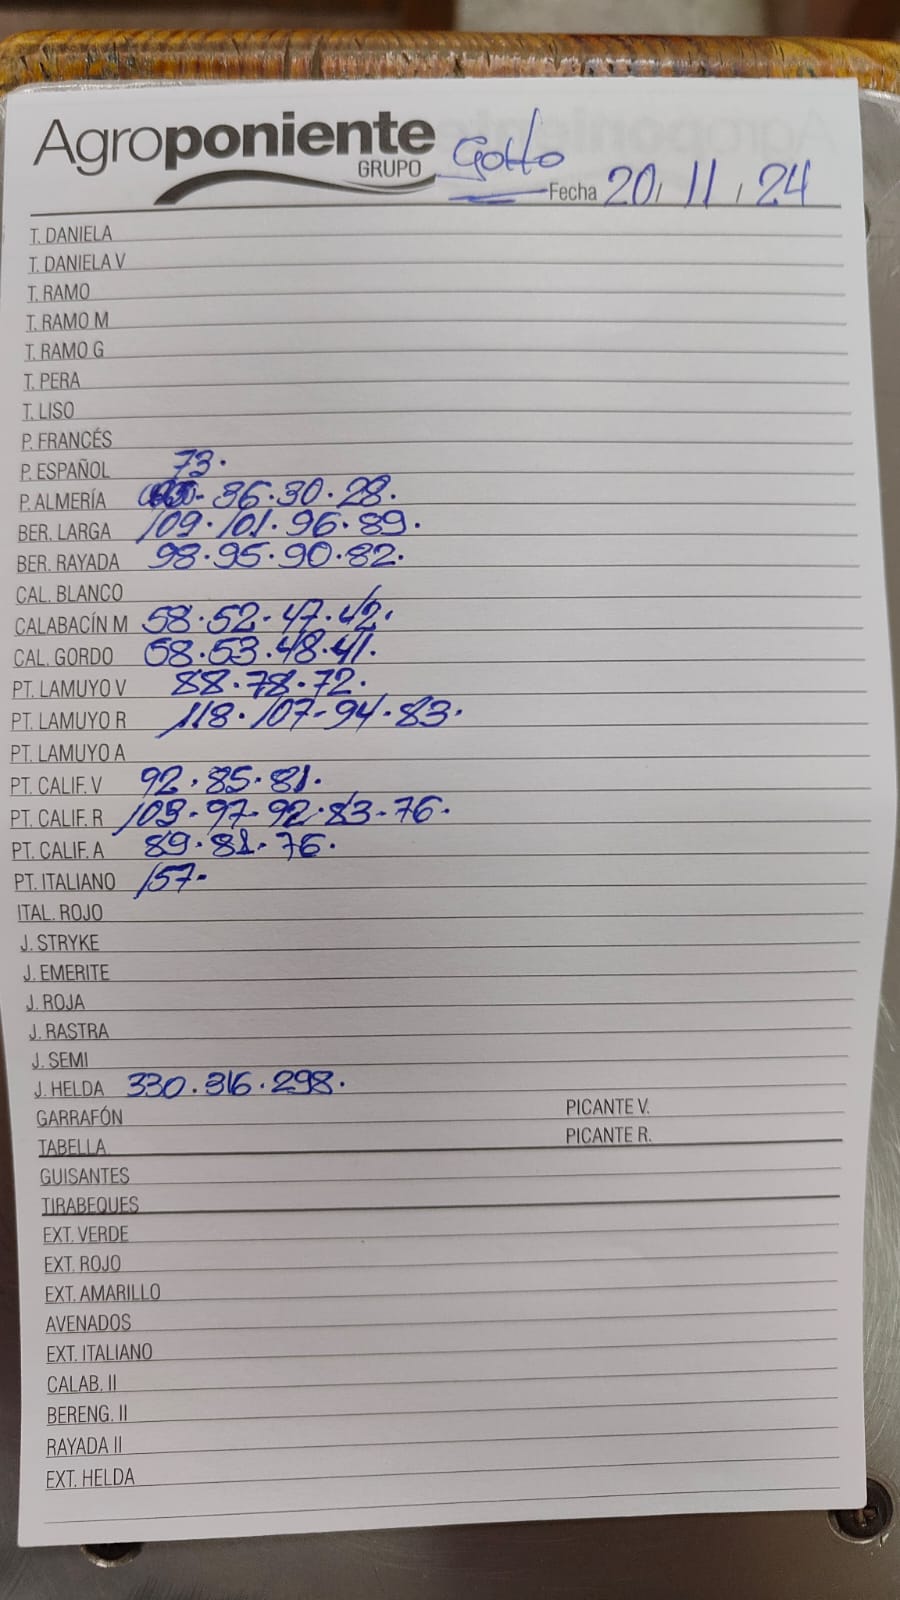 Agroponiente
GRUPO
Gotto
Fecha 20 / 11 / 24
T. DANIELA
T. DANIELA V
T. RAMO
T. RAMO M
T. RAMO G
T. PERA
T. LISO
P. FRANCÉS
P. ESPAÑOL 73.
P. ALMERÍA - 36.30.28.
BER. LARGA 109.101.96.89.
BER. RAYADA 98.95.90.82.
CAL. BLANCO
CALABACÍN M 58.52.47.42.
CAL. GORDO 58.53.48.41.
PT. LAMUYO V 88.78.72.
PT. LAMUYO R 118.107-94.83.
PT. LAMUYO A
PT. CALIF. V 92.85.81.
PT. CALIF. R 109-97-92.83-76.
PT. CALIF. A 89.81.76.
PT. ITALIANO 157-
ITAL. ROJO
J. STRYKE
J. EMERITE
J. ROJA
J. RASTRA
J. SEMI
J. HELDA 330.316.298.
GARRAFÓN PICANTE V.
TABELLA PICANTE R.
GUISANTES
TIRABEQUES
EXT. VERDE
EXT. ROJO
EXT. AMARILLO
AVENADOS
EXT. ITALIANO
CALAB. II
BERENG. II
RAYADA II
EXT. HELDA